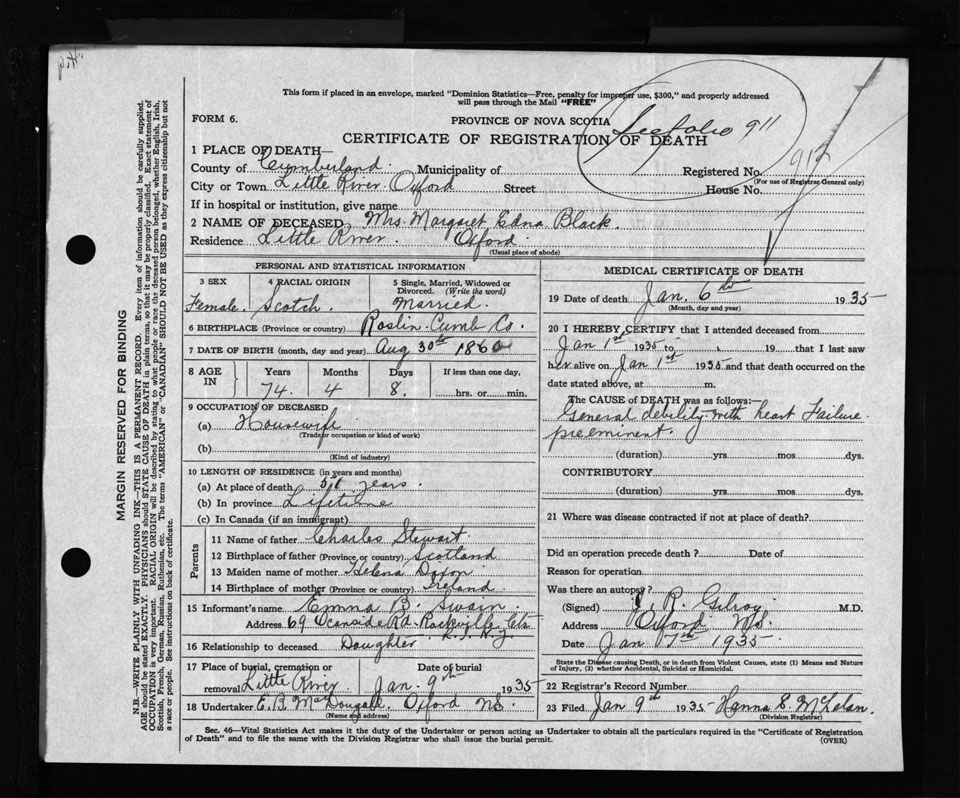 This form if placed in an envelope, marked "Dominion Statistics—Free, penalty for improper use, $300," and properly addressed
will pass through the Mail "FREE"
FORM 6.
PROVINCE OF NOVA SCOTIA
CERTIFICATE OF REGISTRATION OF DEATH
See folio 911
912
1 PLACE OF DEATH—
County of Cumberland. Municipality of Registered No.
(For use of Registrar General only)
City or Town Little River Oxford Street House No.
If in hospital or institution, give name
2 NAME OF DECEASED Mrs. Margaret Edna Black.
Residence Little River. Oxford.
(Usual place of abode)
PERSONAL AND STATISTICAL INFORMATION
3 SEX 4 RACIAL ORIGIN 5 Single, Married, Widowed or Divorced. (Write the word)
Female. Scotch. Married.
6 BIRTHPLACE (Province or country) Roslin Cumb Co.
7 DATE OF BIRTH (month, day and year) Aug 30th 1860
8 AGE IN Years Months Days If less than one day,
74. 4 8. hrs. or min.
9 OCCUPATION OF DECEASED
(a) Housewife
(Trade or occupation or kind of work)
(b)
(Kind of industry)
10 LENGTH OF RESIDENCE (in years and months)
(a) At place of death years.
(b) In province Lifetime
(c) In Canada (if an immigrant)
Parents
11 Name of father Charles Stewart
12 Birthplace of father (Province or country) Scotland
13 Maiden name of mother Helena
14 Birthplace of mother (Province or country) Ireland
15 Informant's name Emma B. Swain
Address 69 Oceanside Rd. Rockville Ctr
L.I. N.Y.
16 Relationship to deceased Daughter
17 Place of burial, cremation or removal Little River. Date of burial Jan. 9th 1935
18 Undertaker E. B. McDougall. Oxford N.S.
(Name and address)
MEDICAL CERTIFICATE OF DEATH
19 Date of death Jan. 6th 1935
(Month, day and year)
20 I HEREBY CERTIFY that I attended deceased from
Jan 1st 1935 to , 19 that I last saw
her alive on Jan 1st 1935 and that death occurred on the
date stated above, at m.
The CAUSE of DEATH was as follows:—
General debility with heart Failure.
preeminent.
(duration) yrs. mos. dys.
CONTRIBUTORY
(duration) yrs. mos. dys.
21 Where was disease contracted if not at place of death?
Did an operation precede death? Date of
Reason for operation
Was there an autopsy?
(Signed) R. Gilroy. M.D.
Address Oxford NS.
Date Jan 7th 1935.
State the Disease causing Death, or in death from Violent Causes, state (1) Means and Nature
of Injury, (2) whether Accidental, Suicidal or Homicidal.
22 Registrar's Record Number
23 Filed Jan 9th 1935 Hanna S. McLelan.
(Division Registrar)
Sec. 46—Vital Statistics Act makes it the duty of the Undertaker or person acting as Undertaker to obtain all the particulars required in the "Certificate of Registration
of Death" and to file the same with the Division Registrar who shall issue the burial permit. (OVER)
MARGIN RESERVED FOR BINDING
N.B.—WRITE PLAINLY WITH UNFADING INK—THIS IS A PERMANENT RECORD. Every item of information should be carefully supplied.
AGE should be stated EXACTLY. PHYSICIANS should STATE CAUSE OF DEATH in plain terms, so that it may be properly classified. Exact statement of
OCCUPATION is very important. RACIAL ORIGIN will be described by stating to what people or race the deceased person belonged, whether English, Irish,
Scottish, French, German, Russian, Ruthenian, etc. The terms "AMERICAN" or "CANADIAN" SHOULD NOT BE USED as they express citizenship but not
a race or people. See instructions on back of certificate.